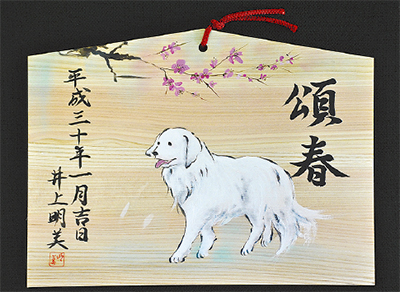 頌春
平成三十年一月吉日
井上明美